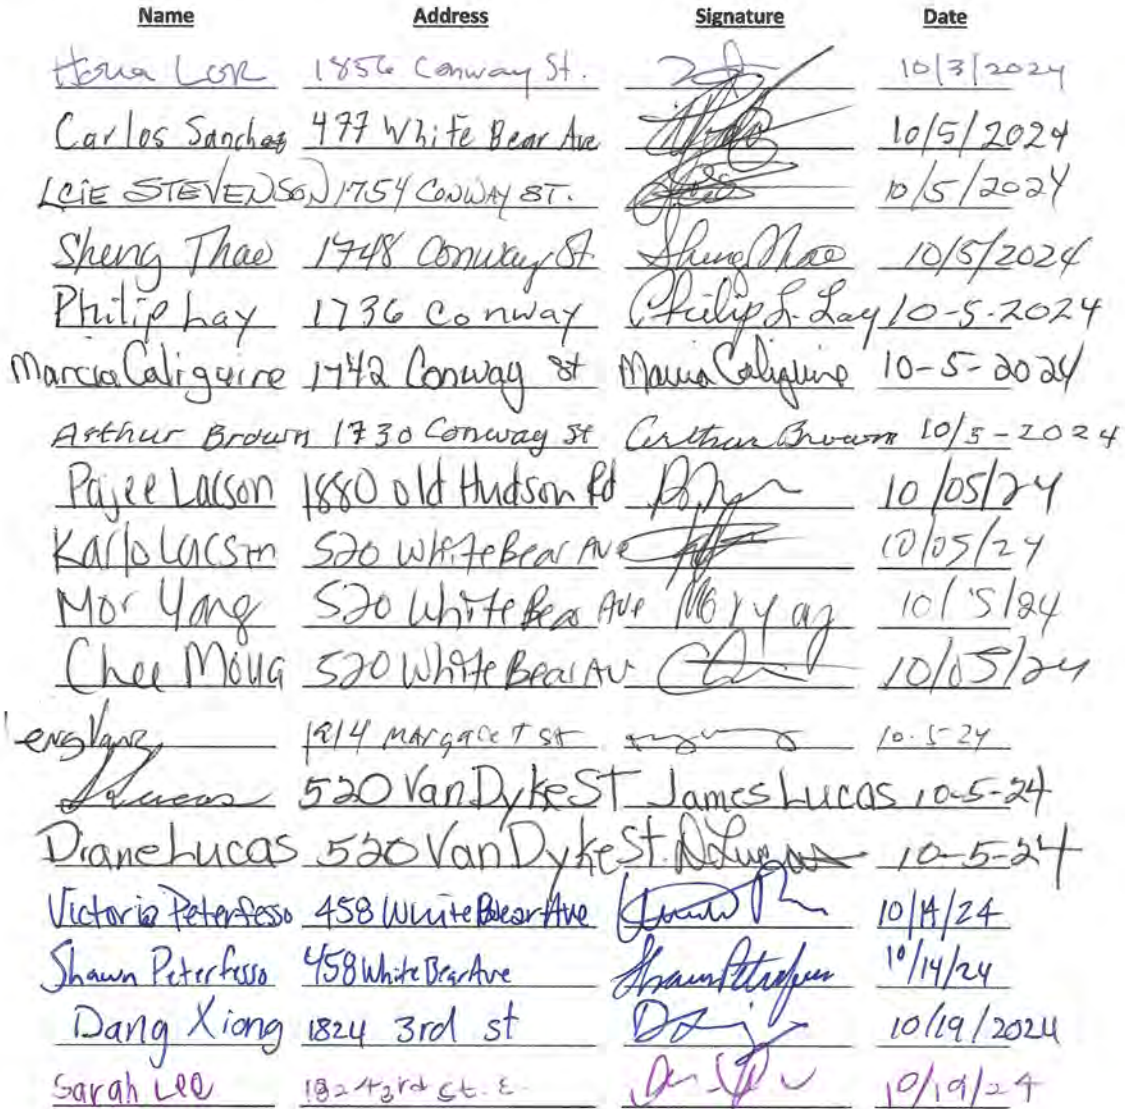 Name Address Signature Date
Lor 1856 Conway St. 10/3/2024
Carlos Sanchez 477 White Bear Ave 10/5/2024
STEVENSON 1754 CONWAY ST. 10/5/2024
Sheng Thao 1748 Conway St Sheng Thao 10/5/2024
Philip Lay 1736 Conway Philip L. Lay 10-5-2024
Marcia Caliguire 1742 Conway St Marcia Caliguire 10-5-2024
Arthur Brown 1730 Conway St Arthur Brown 10/5-2024
Pajee Lacson 1880 old Hudson Rd 10/05/24
Karlo Lacson 520 White Bear Ave 10/05/24
Mor Yang 520 White Bear Ave Mor Yang 10/5/24
Chee Moua 520 White Bear Av 10/05/24
1914 Margaret St 10-5-24
Lucas 520 Van Dyke ST James Lucas 10-5-24
Diane Lucas 520 Van Dyke St. D Lucas 10-5-24
Victoria Peterfesso 458 White Bear Ave 10/14/24
Shawn Peterfesso 458 White Bear Ave Shawn Peterfesso 10/14/24
Dang Xiong 1824 3rd st 10/19/2024
Sarah Lee 1824 3rd St. E 10/19/24